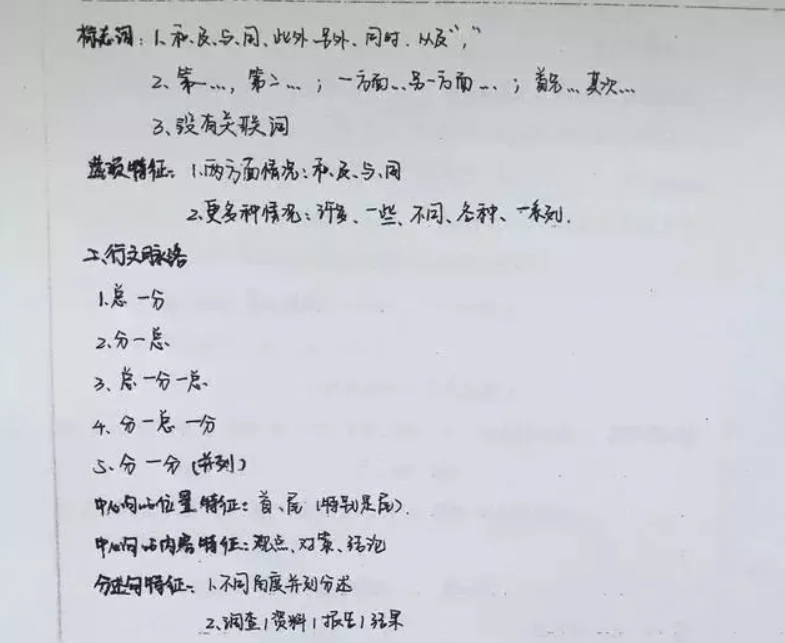 标志词：1、和、及、与、同、此外、另外、同时、以及“；”
2、第一…，第二…；一方面…另一方面…；首先…其次…
3、没有关联词
选项特征：1、两方面情况：和、及、与、同
2、更多种情况：许多、一些、不同、各种、一系列.
二、行文脉络
1、总—分
2、分—总
3、总—分—总
4、分—总—分
5、分—分（并列）
中心句的位置特征：首、尾（特别是尾）
中心句的内容特征：观点、对策、结论
分述句特征：1、不同角度并列分述
2、调查/资料/报告/结果